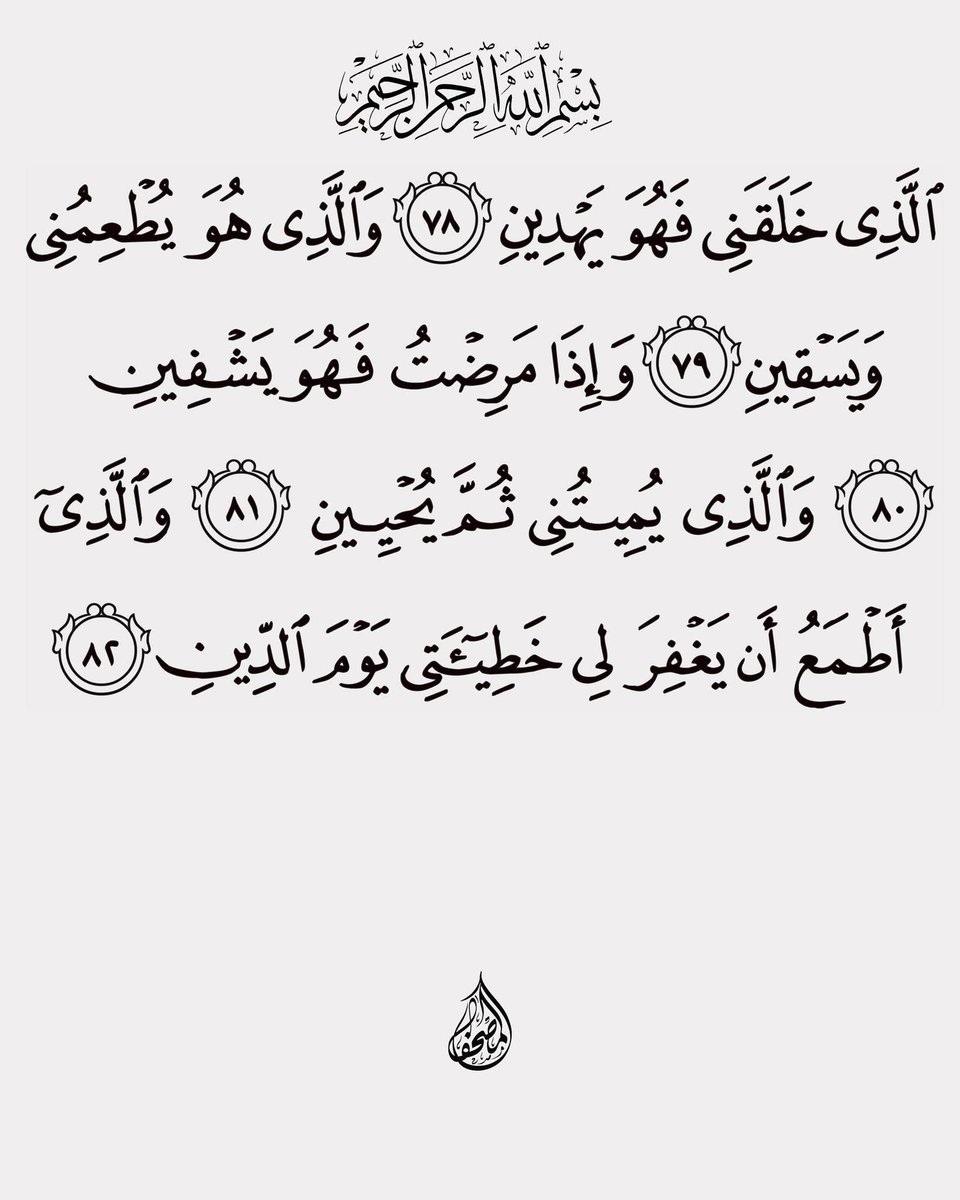 بِسْمِ ٱللَّهِ ٱلرَّحْمَٰنِ ٱلرَّحِيمِ
ٱلَّذِى خَلَقَنِى فَهُوَ يَهْدِينِ ٧٨ وَٱلَّذِى هُوَ يُطْعِمُنِى
وَيَسْقِينِ ٧٩ وَإِذَا مَرِضْتُ فَهُوَ يَشْفِينِ
٨٠ وَٱلَّذِى يُمِيتُنِى ثُمَّ يُحْيِينِ ٨١ وَٱلَّذِىٓ
أَطْمَعُ أَن يَغْفِرَ لِى خَطِيٓـَٔتِى يَوْمَ ٱلدِّينِ ٨٢
المصحف